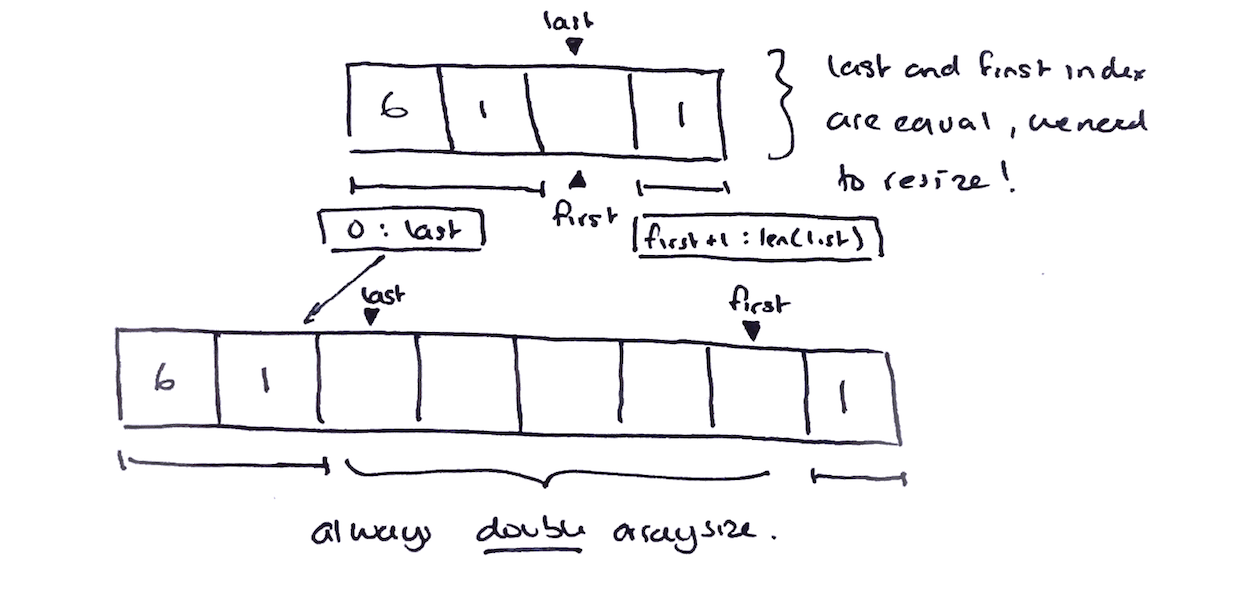 last
6 1 1
last and first index
are equal, we need
to resize!
first
0 : last
first+1 : len(list)
last
first
6 1 1
always double arraysize.